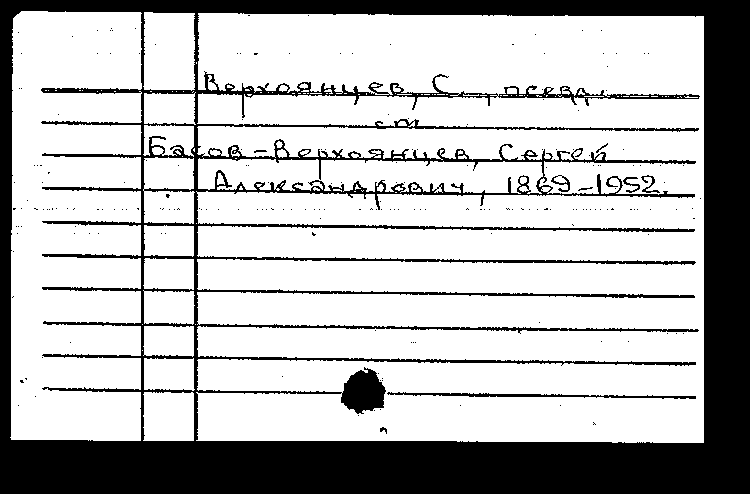 Верхоянцев, С., псевд.
см
Басов-Верхоянцев, Сергей
Александрович, 1869-1952.